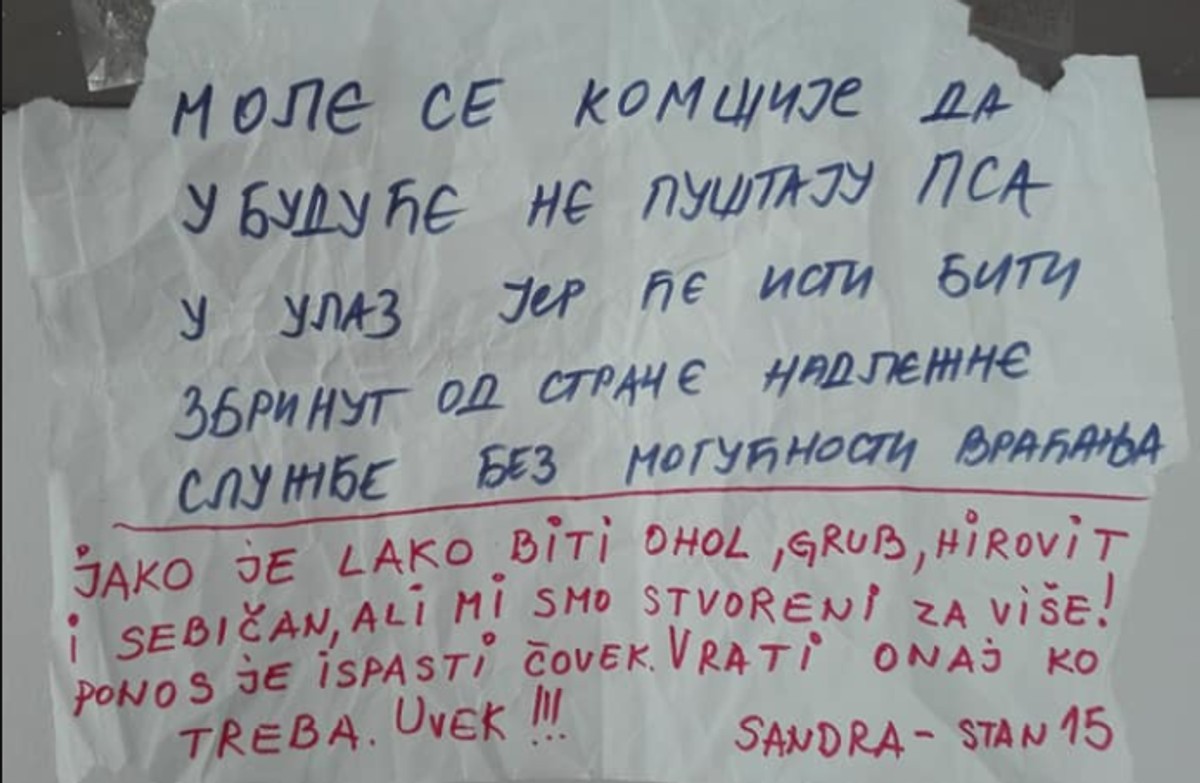 МОЛЕ СЕ КОМШИЈЕ ДА
УБУДУЋЕ НЕ ПУШТАЈУ ПСА
У УЛАЗ ЈЕР ЋЕ ИСТИ БИТИ
ЗБРИНУТ ОД СТРАНЕ НАДЛЕЖНЕ
СЛУЖБЕ БЕЗ МОГУЋНОСТИ ВРАЋАЊА
JAKO JE LAKO BITI OHOL, GRUB, HIROVIT
I SEBIČAN, ALI MI SMO STVORENI ZA VIŠE!
PONOS JE ISPASTI ČOVEK. VRATI ONAJ KO
TREBA. UVEK!!! SANDRA - STAN 15